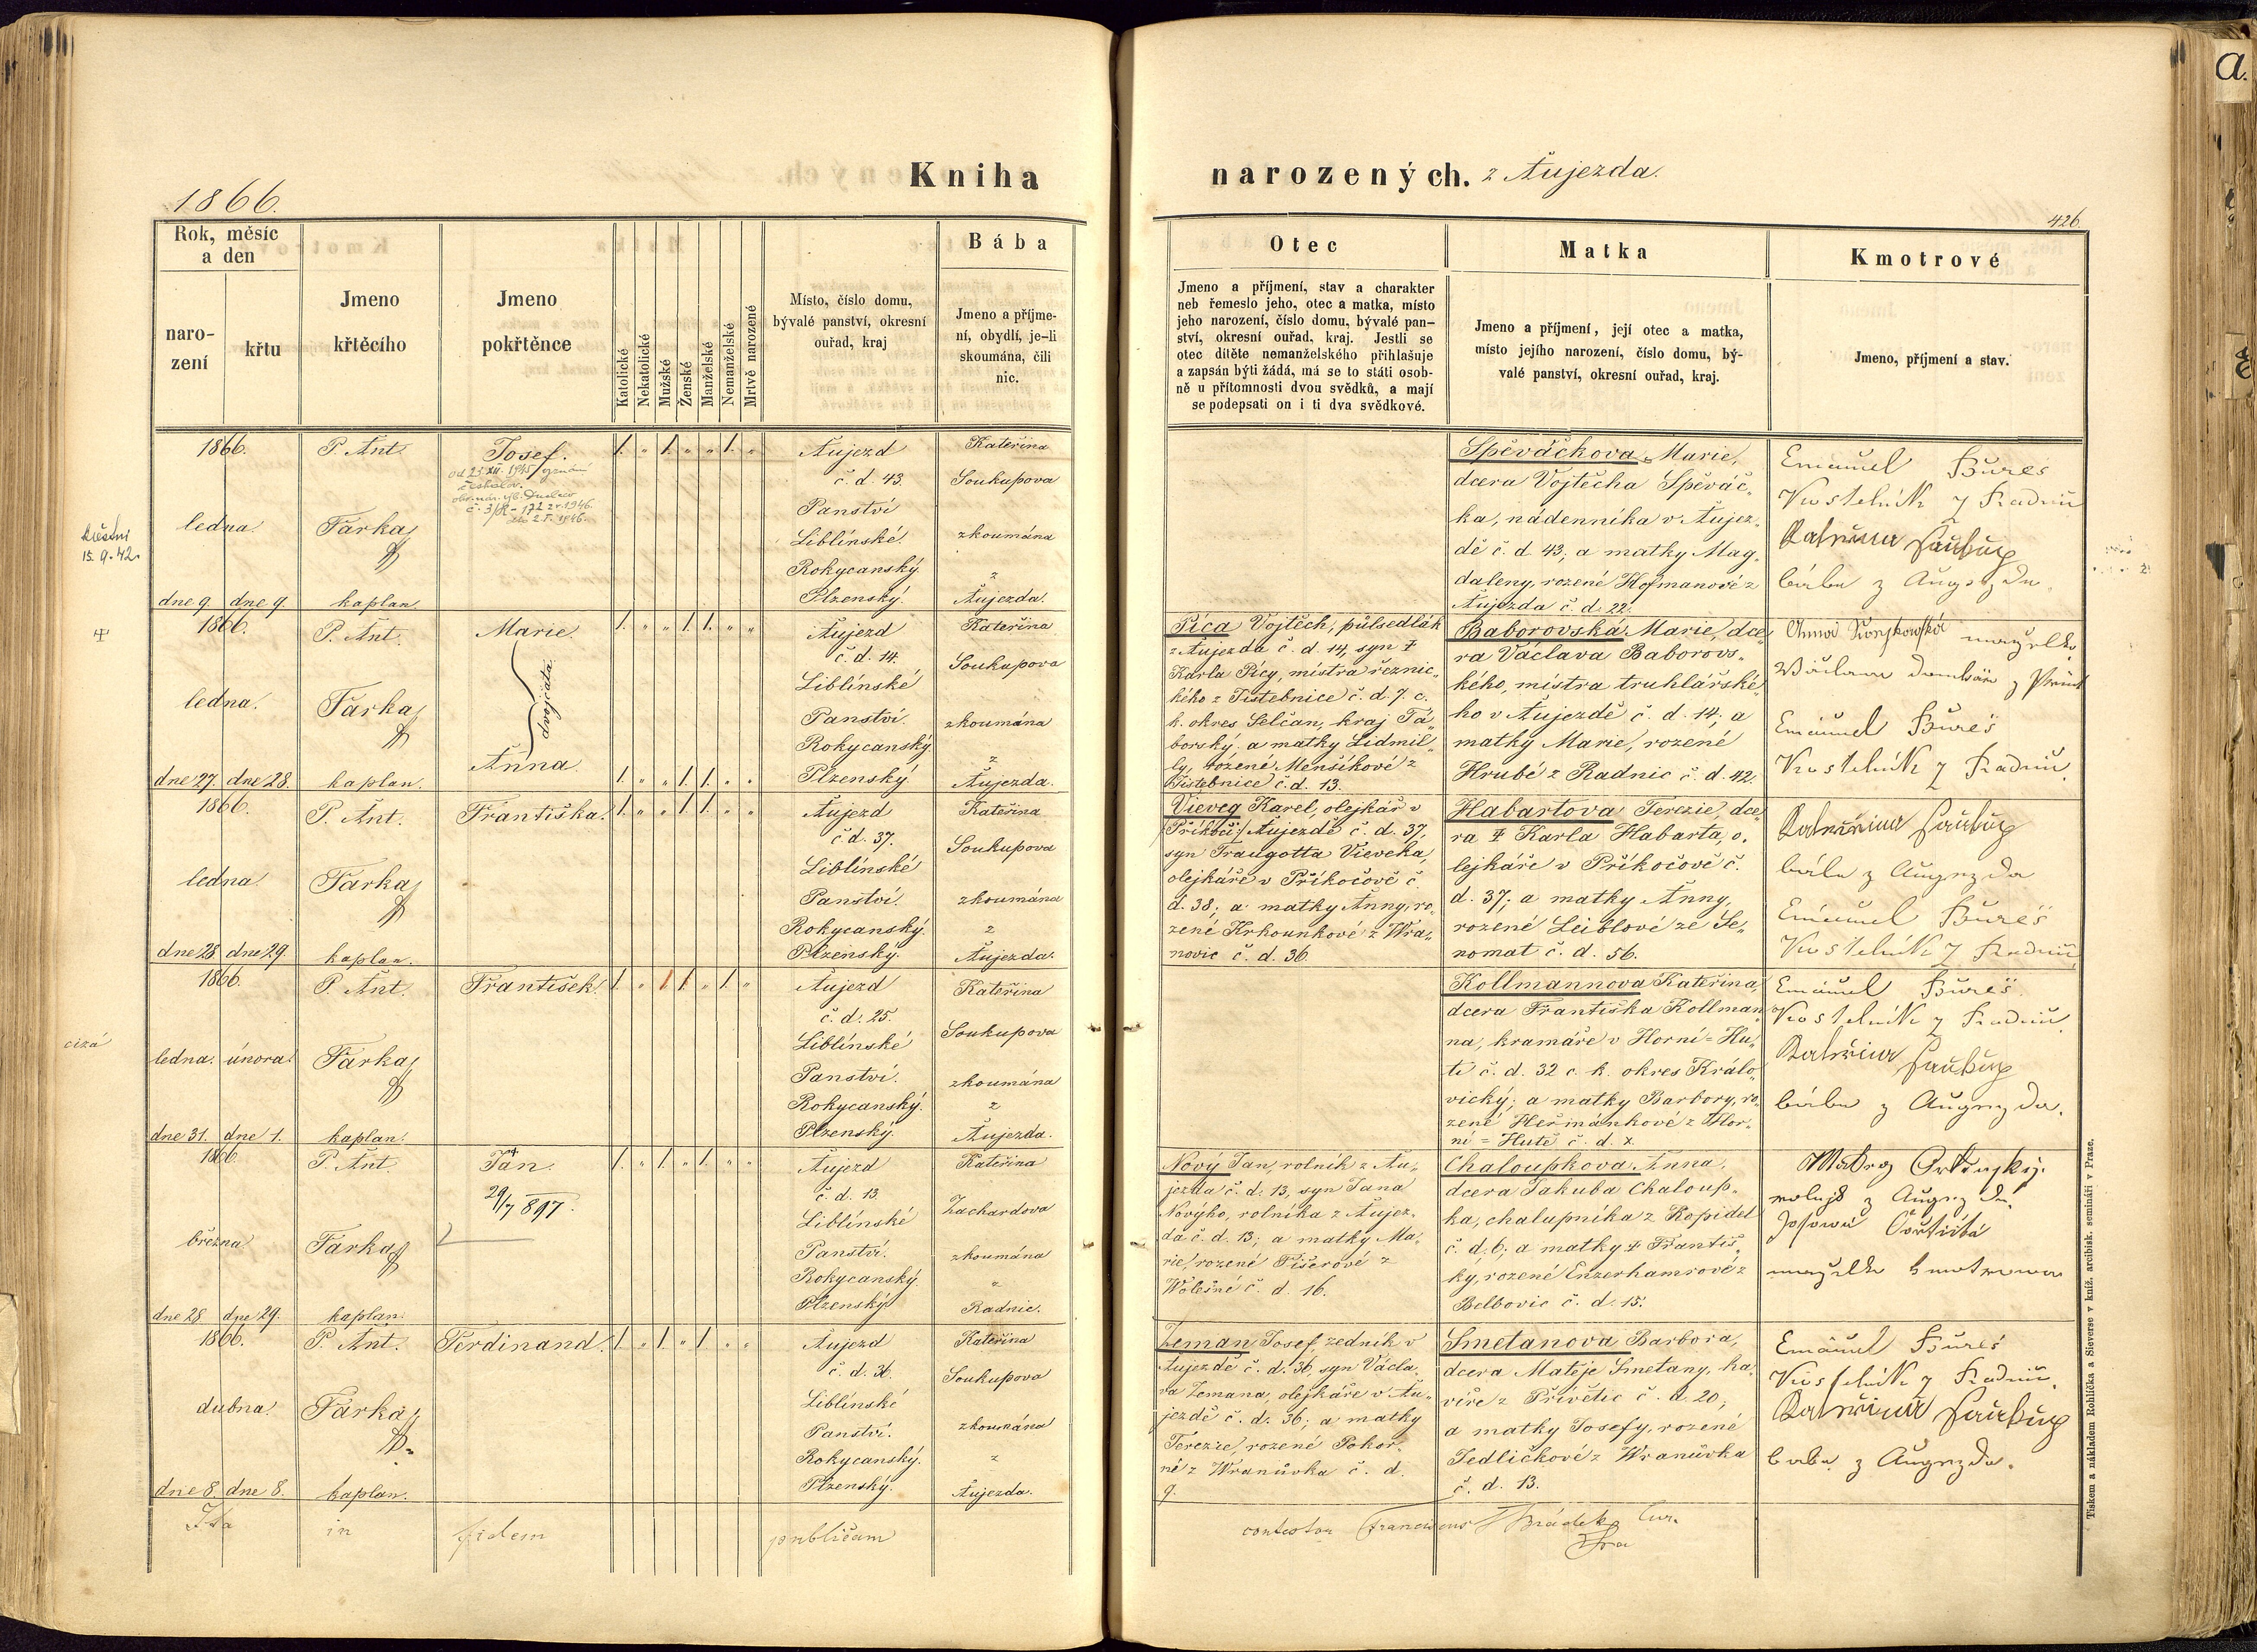 1866.
Kniha narozených. z Aujezda.
426.
Rok, měsíc a den
naro-
zení
křtu
Jmeno
křtěcího
Jmeno
pokřtěnce
Katolické
Nekatolické
Mužské
Ženské
Manželské
Nemanželské
Mrtvě narozené
Místo, číslo domu,
bývalé panství, okresní
ouřad, kraj
Bába
Jmeno a příjme-
ní, obydlí, je-li
skoumána, čili
nic.
Otec
Jmeno a příjmení, stav a charakter
neb řemeslo jeho, otec a matka, místo
jeho narození, číslo domu, bývalé pan-
ství, okresní ouřad, kraj. Jestli se
otec dítěte nemanželského přihlašuje
a zapsán býti žádá, má se to státi osob-
ně u přítomnosti dvou svědků, a mají
se podepsati on i ti dva svědkové.
Matka
Jmeno a příjmení, její otec a matka,
místo jejího narození, číslo domu, bý-
valé panství, okresní ouřad, kraj.
Kmotrové
Jmeno, příjmení a stav.
1866.
ledna.
dne 9. dne 9.
P. Ant.
Farka
kaplan.
Josef.
1. „ 1. „ „ 1. „
Aujezd
č. d. 43.
Panství
Liblínské.
Rokycanský
Plzenský.
Kateřina
Soukupova
zkoumána
z
Aujezda.
Spěváčkova Marie,
dcera Vojtěcha Spěváč-
ka, nádenníka v Aujez-
dě č. d. 43; a matky Mag-
daleny, rozené Hofmanové z
Aujezda č. d. 22.
Emanuel Bureš
Kostelník z Radnic
bába z Augezda
15. 9. 42.
1866.
ledna.
dne 27. dne 28.
P. Ant.
Farka
kaplan.
Marie.
dvojčata
Anna.
1. „ „ 1. 1. „ „
1. „ „ 1. 1. „ „
Aujezd
č. d. 14.
Liblínské
Panství.
Rokycanský.
Plzenský
Kateřina
Soukupova
zkoumána
z
Aujezda.
Píca Vojtěch, půlsedlák
z Aujezda č. d. 14, syn ‡
Karla Pícy, mistra řeznic-
kého z Jistebnice č. d. 7. c.
k. okres Selčan, kraj Tá-
borský. a matky Lidmil-
ly, rozené Menšíkové z
Jistebnice č. d. 13.
Baborovská Marie, dce-
ra Václava Baborovs-
kého, mistra truhlářské-
ho v Aujezdě č. d. 14; a
matky Marie, rozené
Hrubé z Radnic č. d. 42.
Emanuel Bureš
Kostelník z Radnic
1866.
ledna.
dne 28. dne 29.
P. Ant.
Farka
kaplan.
Františka.
1. „ „ 1. 1. „ „
Aujezd
č. d. 37.
Liblínské
Panství.
Rokycanský.
Plzenský.
Kateřina
Soukupova
zkoumána
z
Aujezda.
Vieveg Karel, olejkář v
/Příkoči/ Aujezdě č. d. 37,
syn Traugotta Vieveka,
olejkáře v Příkočově č.
d. 38; a matky Anny, ro-
zené Krhounkové z Wra-
novic č. d. 36.
Habartova Terezie, dce-
ra ‡ Karla Habarta, o-
lejkáře v Příkočově č.
d. 37; a matky Anny,
rozené Leiblové ze Se-
nomat č. d. 56.
bába z Augezda
Emanuel Bureš
Kostelník z Radnic
cizá
1866.
ledna. února.
dne 31. dne 1.
P. Ant.
Farka
kaplan.
František.
Aujezd
č. d. 25.
Liblínské
Panství.
Rokycanský.
Plzenský.
Kateřina
Soukupova
zkoumána
z
Aujezda.
Kollmannova Kateřina,
dcera Františka Kollman-
na, kramáře v Horní-Hu-
ti č. d. 32 c. k. okres Králo-
vický; a matky Barbory, ro-
zené Heřmánkové z Hor-
ní-Hutě č. d. x.
Emanuel Bureš
Kostelník z Radnic
bába z Augezda.
1866.
března
dne 28. dne 29.
P. Ant.
Farka
kaplan.
Jan.
29/7 897.
1. „ 1. „ 1. „ „
Aujezd
č. d. 13.
Liblínské
Panství.
Rokycanský.
Plzenský
Kateřina
Zachardova
zkoumána
z
Radnic.
Nový Jan, rolník z Au-
jezda č. d. 13, syn Jana
Novýho, rolníka z Aujez-
da č. d. 13; a matky Ma-
rie, rozené Fišerové z
Wolešné č. d. 16.
Chaloupkova Anna,
dcera Jakuba Chaloup-
ka, chalupníka z Kopidel
č. d. 6; a matky ‡ Františ-
ky, rozené Enzerhamrové z
Belbovic č. d. 15.
1866.
dubna.
dne 8. dne 8.
P. Ant.
Farka
kaplan.
Ferdinand.
1. „ 1. „ 1. „ „
Aujezd
č. d. 36.
Liblínské
Panství.
Rokycanský.
Plzenský.
Kateřina
Soukupova
zkoumána
z
Aujezda.
Zeman Josef, zedník v
Aujezdě č. d. 36, syn Václa-
va Zemana, olejkáře v Au-
jezdě č. d. 36; a matky
Terezie, rozené Pokor-
né z Wranůvka č. d.
9.
Smetanova Barbora,
dcera Matěje Smetany, ha-
víře z Přívětic č. d. 20;
a matky Josefy, rozené
Jedličkové z Wranůvka
č. d. 13.
Emanuel Bureš
Kostelník z Radnic
bába z Augezda.
Ita in fidem publicam
contestor Franciscus Hrádek Cur.
Tiskem a nákladem Rohlíčka a Sieverse v kníž. arcibisk. semináři v Praze.
a.